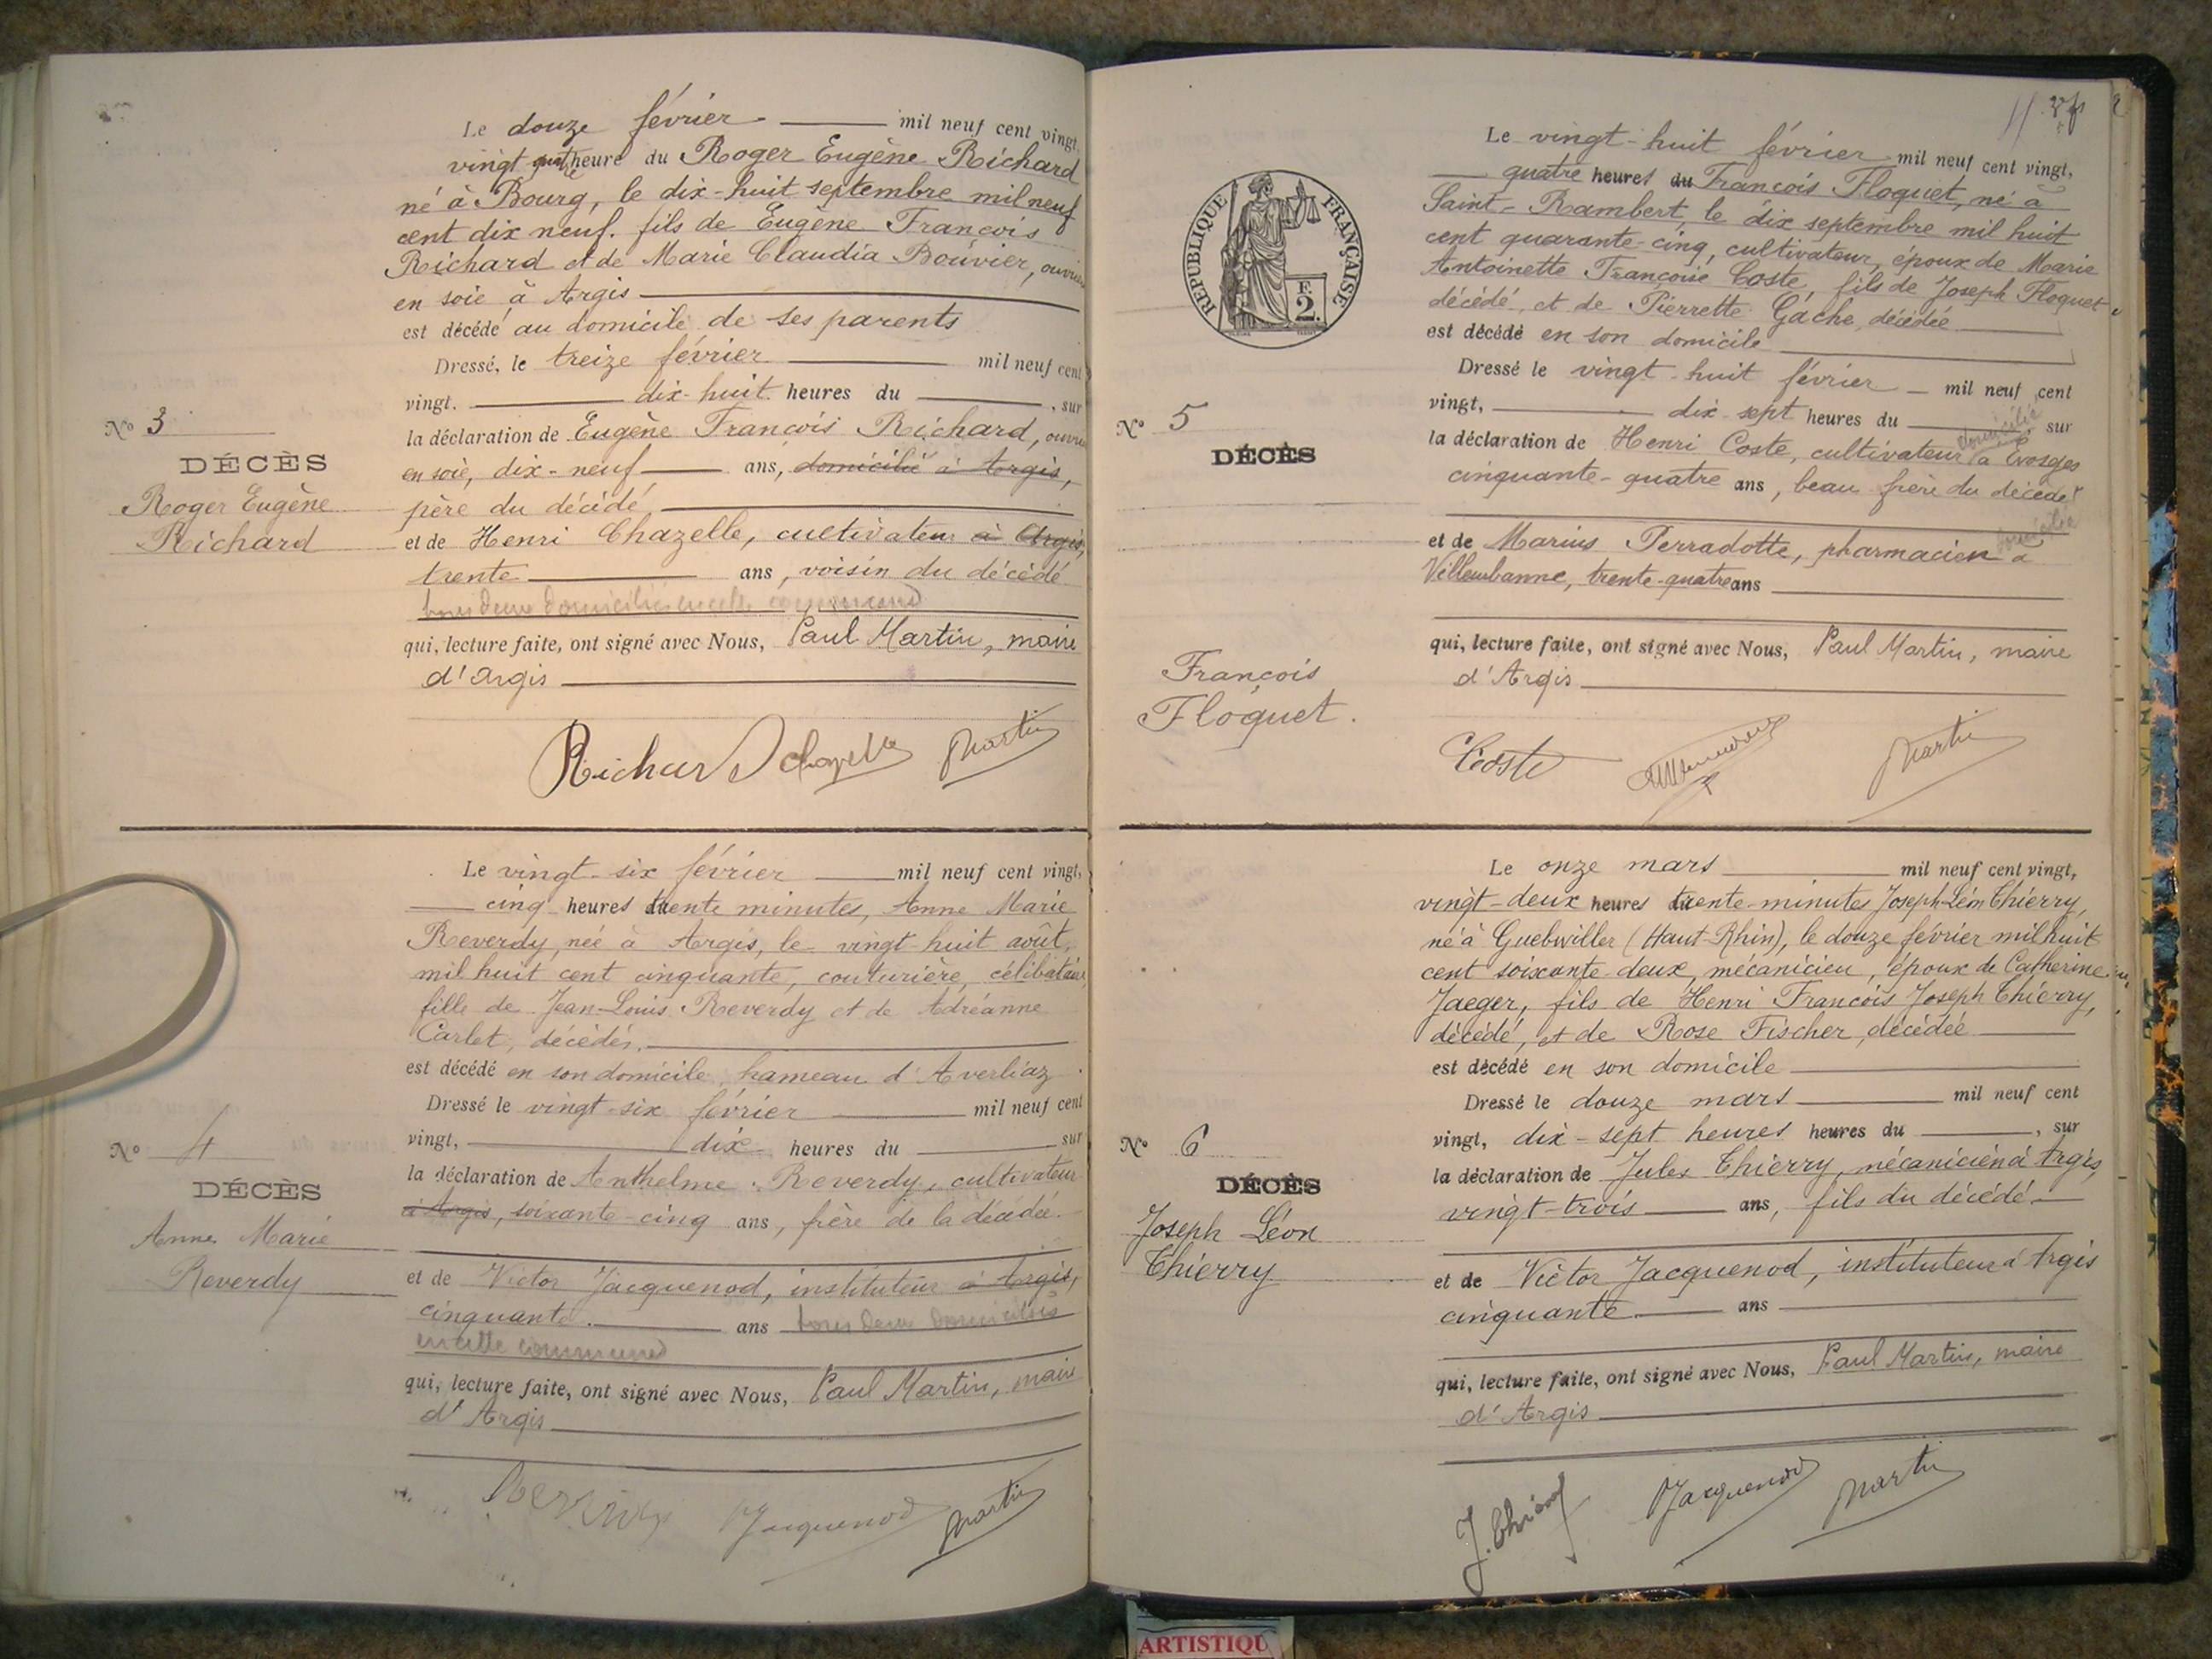 Le douze février mil neuf cent vingt
vingt quatre heure du Roger Eugène Richard
né à Bourg, le dix-huit septembre mil neuf
cent dix neuf. fils de Eugène François
Richard et de Marie Claudia Bouvier,
en soie à Argis
est décédé au domicile de ses parents
Dressé, le treize février mil neuf cent
vingt. dix-huit heures du , sur
la déclaration de Eugène François Richard,
en soie, dix-neuf ans, domicilié à Argis,
père du décédé,
et de Henri Chazelle, cultivateur à Argis,
trente ans, voisin du décédé
tous deux domiciliés en cette commune
qui, lecture faite, ont signé avec Nous, Paul Martin, maire
d'Argis
Nº 3
DÉCÈS
Roger Eugène
Richard
Richard Chazelle Martin
Le vingt-six février mil neuf cent vingt,
cinq heures trente minutes, Anne Marie
Reverdy, née à Argis, le vingt-huit août,
mil huit cent cinquante, couturière, célibataire,
fille de Jean-Louis Reverdy et de Adréanne
Carlet, décédés.
est décédé en son domicile, hameau d'Averliaz
Dressé le vingt-six février mil neuf cent
vingt, dix heures du sur
la déclaration de Anthelme Reverdy, cultivateur
à Argis, soixante-cinq ans, frère de la décédée.
et de Victor Jacquenod, instituteur à Argis,
cinquante. ans tous deux domiciliés
en cette commune
qui, lecture faite, ont signé avec Nous, Paul Martin, maire
d'Argis
Nº 4
DÉCÈS
Anne Marie
Reverdy
Jacquenod Martin
11
RÉPUBLIQUE FRANÇAISE
F.
2.
Le vingt-huit février mil neuf cent vingt,
quatre heures du François Floquet, né à
Saint-Rambert, le dix septembre mil huit
cent quarante-cinq, cultivateur, époux de Marie
Antoinette Françoise Coste, fils de Joseph Floquet
décédé, et de Pierrette Gache, décédée
est décédé en son domicile
Dressé le vingt-huit février mil neuf cent
vingt, dix-sept heures du sur
la déclaration de Henri Coste, cultivateur domicilié à Evosges
cinquante-quatre ans, beau frère du décédé
et de Marius Perradotte, pharmacien domicilié à
Villeurbanne, trente-quatre ans
qui, lecture faite, ont signé avec Nous, Paul Martin, maire
d'Argis
Nº 5
DÉCÈS
François
Floquet.
Coste Martin
Le onze mars mil neuf cent vingt,
vingt-deux heures trente-minutes Joseph Léon Thierry,
né à Guebwiller (Haut-Rhin), le douze février mil huit
cent soixante-deux, mécanicien, époux de Catherine
Jaeger, fils de Henri François Joseph Thierry,
décédé, et de Rose Fischer, décédée
est décédé en son domicile
Dressé le douze mars mil neuf cent
vingt, dix-sept heures heures du , sur
la déclaration de Jules Thierry, mécanicien à Argis,
vingt-trois ans, fils du décédé
et de Victor Jacquenod, instituteur à Argis
cinquante ans
qui, lecture faite, ont signé avec Nous, Paul Martin, maire
d'Argis
Nº 6
DÉCÈS
Joseph Léon
Thierry
J. Thierry Jacquenod Martin
ARTISTIQU